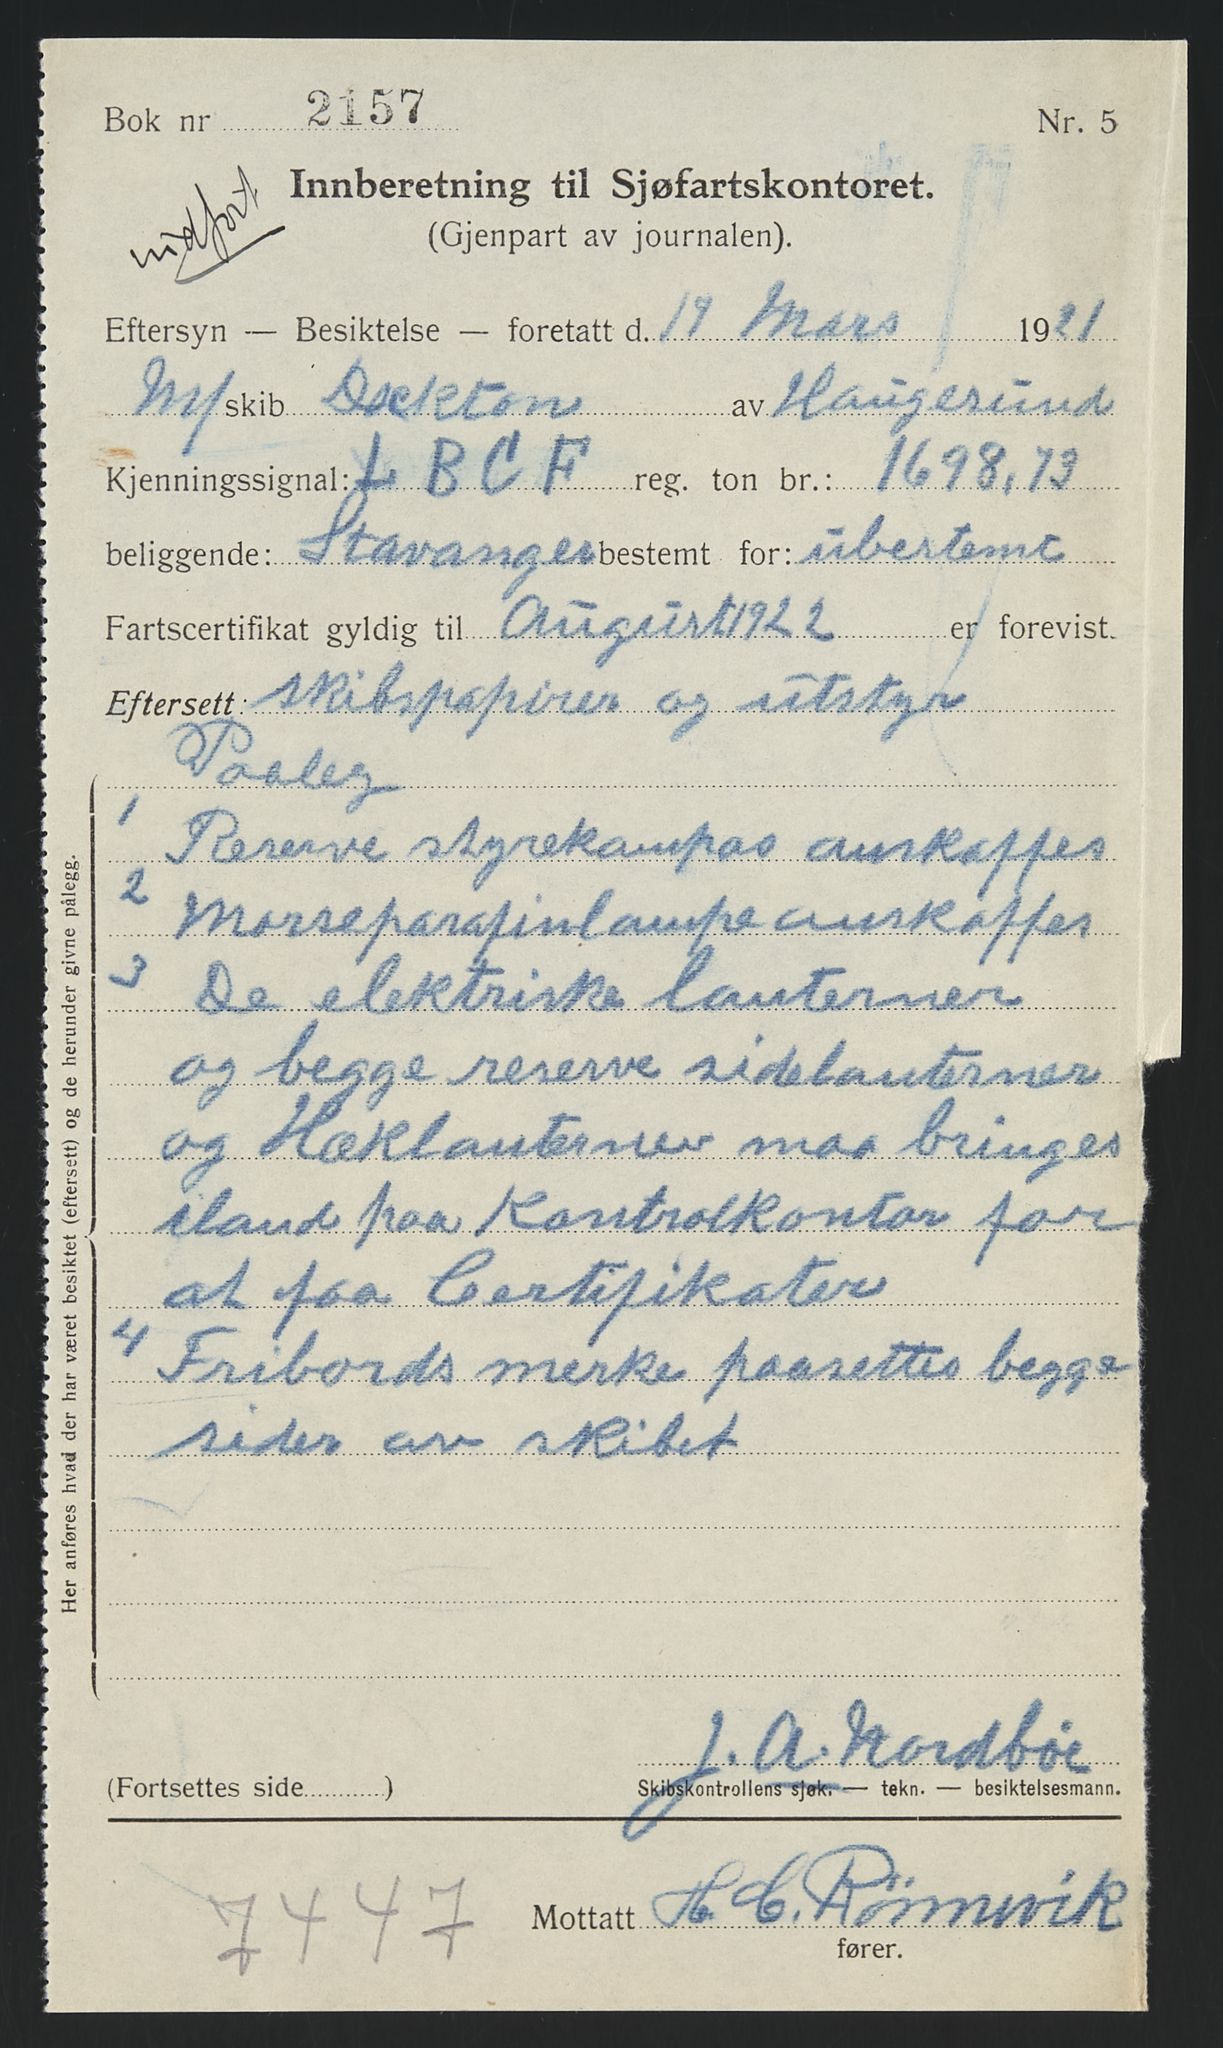 Bok nr 2157 Nr. 5
Innberetning til Sjøfartskontoret.
(Gjenpart av journalen).
Eftersyn — Besiktelse — foretatt d. 19 Mars 1921
M/ skib Dockton av Haugesund
Kjenningssignal: L B C F reg. ton br.: 1698,73
beliggende: Stavanger bestemt for: ubestemt
Fartscertifikat gyldig til August 1922 er forevist.
Eftersett: skibspapirer og utstyr
Paaleg
1 Reserve styrekompas anskaffes
2 Morseparafinlampe anskaffes
3 De elektriske lanterner
og begge reserve sidelanterner
og Hæklanterner maa bringes
iland paa Kontrolkontor for
at faa Certifikater
4 Fribords merke paasettes begge
sider av skibet
Her anføres hvad der har været besiktet (eftersett) og de herunder givne pålegg.
J. A. Nordböe
(Fortsettes side ) Skibskontrollens sjøk. — tekn. — besiktelsesmann.
7447 Mottatt H. C. Rönnevik
fører.